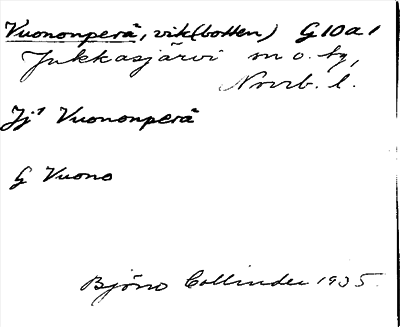 Vuononperä, vik(botten) G10a1
Jukkasjärvi sn o. tg,
Norrb. l.
Jj¹ Vuononperä
G Vuono
Björn Collinder 1935